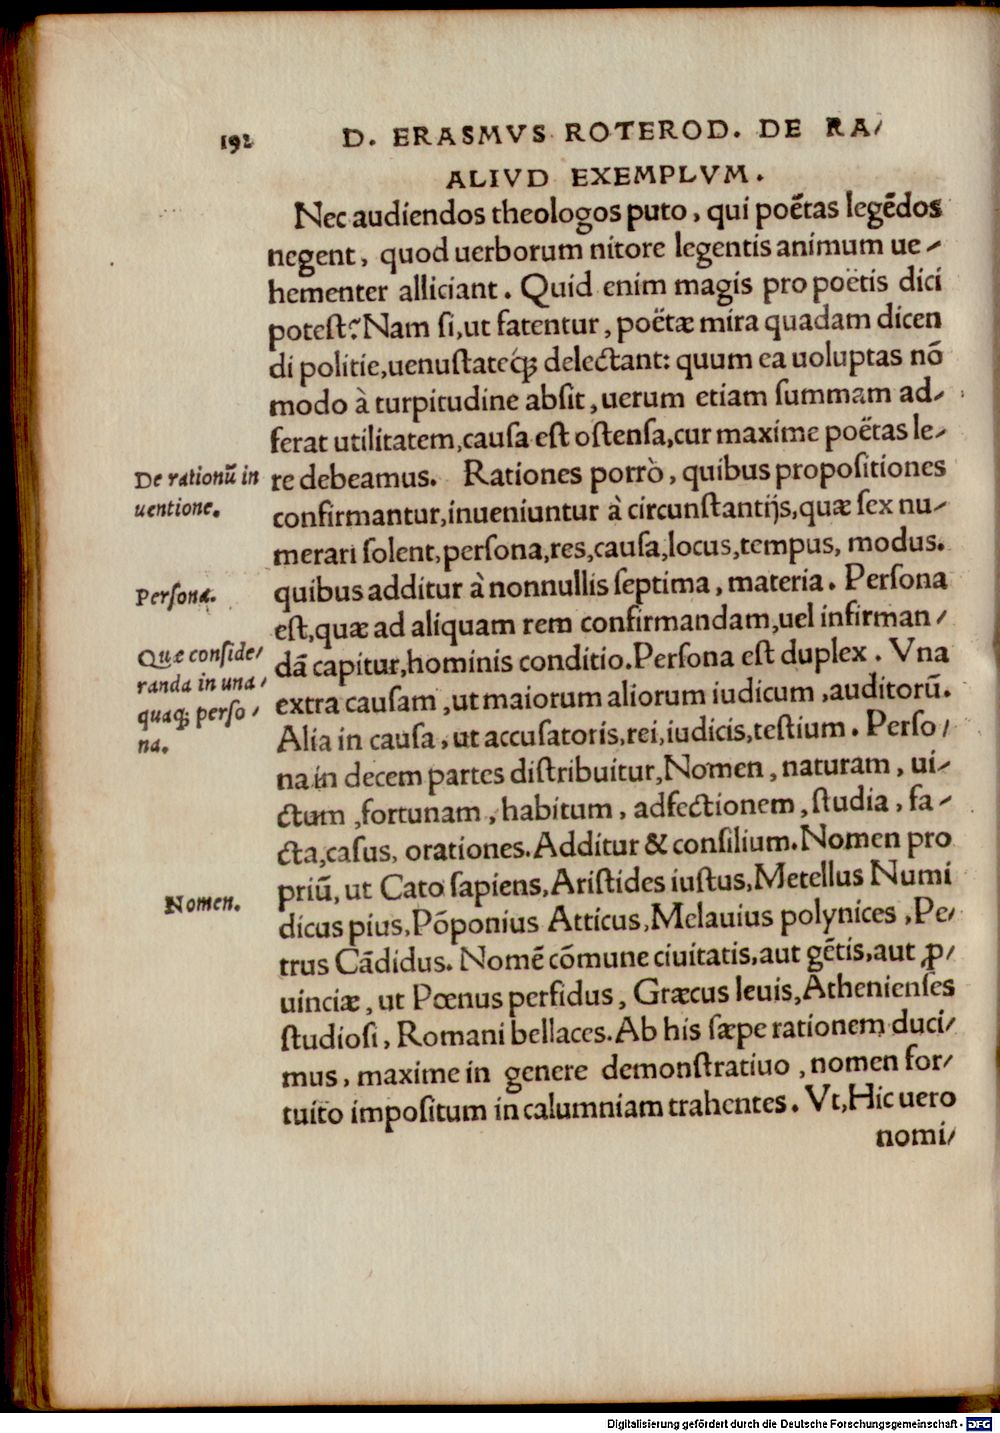 192 D. ERASMVS ROTEROD. DE RA/
ALIVD EXEMPLVM.
Nec audiendos theologos puto, qui poëtas legẽdos
negent, quod uerborum nitore legentis animum ue/
hementer alliciant. Quid enim magis pro poëtis dici
poteſt? Nam ſi, ut fatentur, poëtæ mira quadam dicen
di politie, uenuſtateq́; delectant: quum ea uoluptas nõ
modo à turpitudine abſit, uerum etiam ſummam ad/
ferat utilitatem, cauſa eſt oſtenſa, cur maxime poëtas le/
De rationũ in
uentione.
re debeamus. Rationes porrò, quibus propoſitiones
confirmantur, inueniuntur à circunſtantijs, quæ ſex nu/
merari ſolent, perſona, res, cauſa, locus, tempus, modus.
Perſona.
quibus additur à nonnullis ſeptima, materia. Perſona
eſt, quæ ad aliquam rem confirmandam, uel infirman/
Quæ conſide/
randa in una/
quaq; perſo/
na.
dã capitur, hominis conditio. Perſona eſt duplex. Vna
extra cauſam, ut maiorum aliorum iudicum, auditorũ.
Alia in cauſa, ut accuſatoris, rei, iudicis, teſtium. Perſo/
na in decem partes diſtribuitur, Nomen, naturam, ui/
ctum, fortunam, habitum, adfectionem, ſtudia, fa/
cta, caſus, orationes. Additur & conſilium. Nomen pro
Nomen.
priũ, ut Cato ſapiens, Ariſtides iuſtus, Metellus Numi
dicus pius, Põponius Atticus, Melauius polynices, Pe/
trus Cãdidus. Nomẽ cõmune ciuitatis, aut gẽtis, aut ꝓ/
uinciæ, ut Pœnus perfidus, Græcus leuis, Athenienſes
ſtudioſi, Romani bellaces. Ab his ſæpe rationem duci/
mus, maxime in genere demonſtratiuo, nomen for/
tuito impoſitum in calumniam trahentes. Vt, Hic uero
nomi/
Digitalisierung gefördert durch die Deutsche Forschungsgemeinschaft - DFG